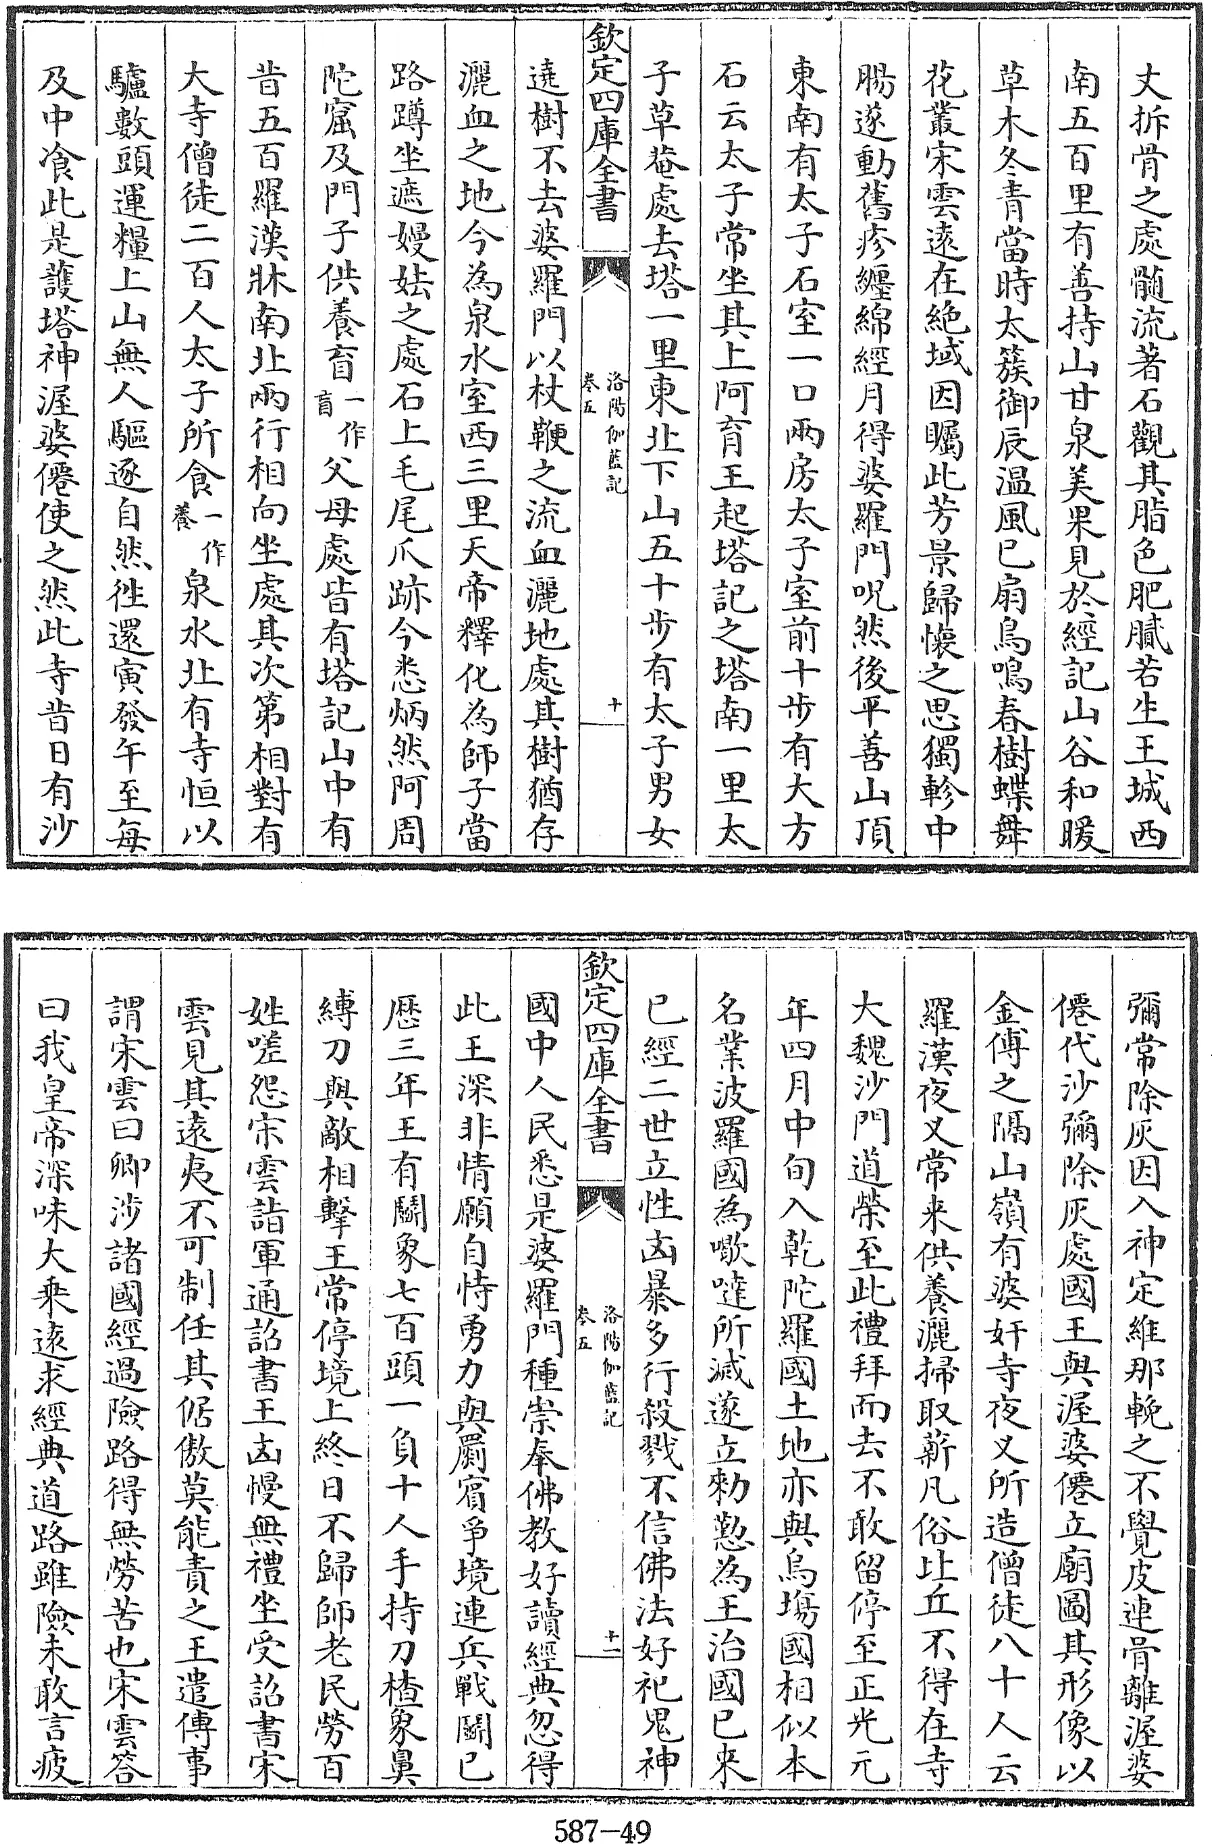 丈拆骨之處髓流著石觀其脂色肥膩若生王城西
南五百里有善持山甘泉美果見於經記山谷和暖
草木冬青當時太簇御辰温風已扇鳥鳴春樹蝶舞
花叢宋雲遠在絶域因矚此芳景歸懐之思獨軫中
腸遂動舊疹纒綿經月得婆羅門呪然後平善山頂
東南有太子石室一口兩房太子室前十步有大方
石云太子常坐其上阿育王起塔記之塔南一里太
子草菴處去塔一里東北下山五十步有太子男女
欽定四庫全書
洛陽伽藍記
卷五
十
遶樹不去婆羅門以杖鞭之流血灑地處其樹猶存
灑血之地今為泉水室西三里天帝釋化為師子當
路蹲坐遮嫚妶之處石上毛尾爪跡今悉炳然阿周
陀窟及門子供養育一作盲父母處皆有塔記山中有
昔五百羅漢牀南北兩行相向坐處其次第相對有
大寺僧徒二百人太子所食一作養泉水北有寺恒以
驢數頭運糧上山無人驅逐自然徃還寅發午至每
及中飡此是護塔神渥婆僊使之然此寺昔日有沙
彌常除灰因入神定維那輓之不覺皮連骨離渥婆
僊代沙彌除灰處國王與渥婆僊立廟圖其形像以
金傅之隔山嶺有婆奸寺夜叉所造僧徒八十人云
羅漢夜叉常来供養灑掃取薪凡俗比丘不得在寺
大魏沙門道榮至此禮拜而去不敢留停至正光元
年四月中旬入乾陀羅國土地亦與烏塲國相似本
名業波羅國為嚈噠所滅遂立勑懃為王治國已来
已經二世立性凶暴多行殺戮不信佛法好祀鬼神
欽定四庫全書
洛陽伽藍記
卷五
十一
國中人民悉是婆羅門種崇奉佛教好讀經典忽得
此王深非情願自恃勇力與罽賓爭境連兵戰鬬已
歴三年王有鬬象七百頭一負十人手持刀楂象鼻
縛刀與敵相擊王常停境上終日不歸師老民勞百
姓嗟怨宋雲詣軍通詔書王凶慢無禮坐受詔書宋
雲見其遠夷不可制任其倨傲莫能責之王遣傳事
謂宋雲曰卿涉諸國經過險路得無勞苦也宋雲答
曰我皇帝深味大乘遠求經典道路雖險未敢言疲
587-49